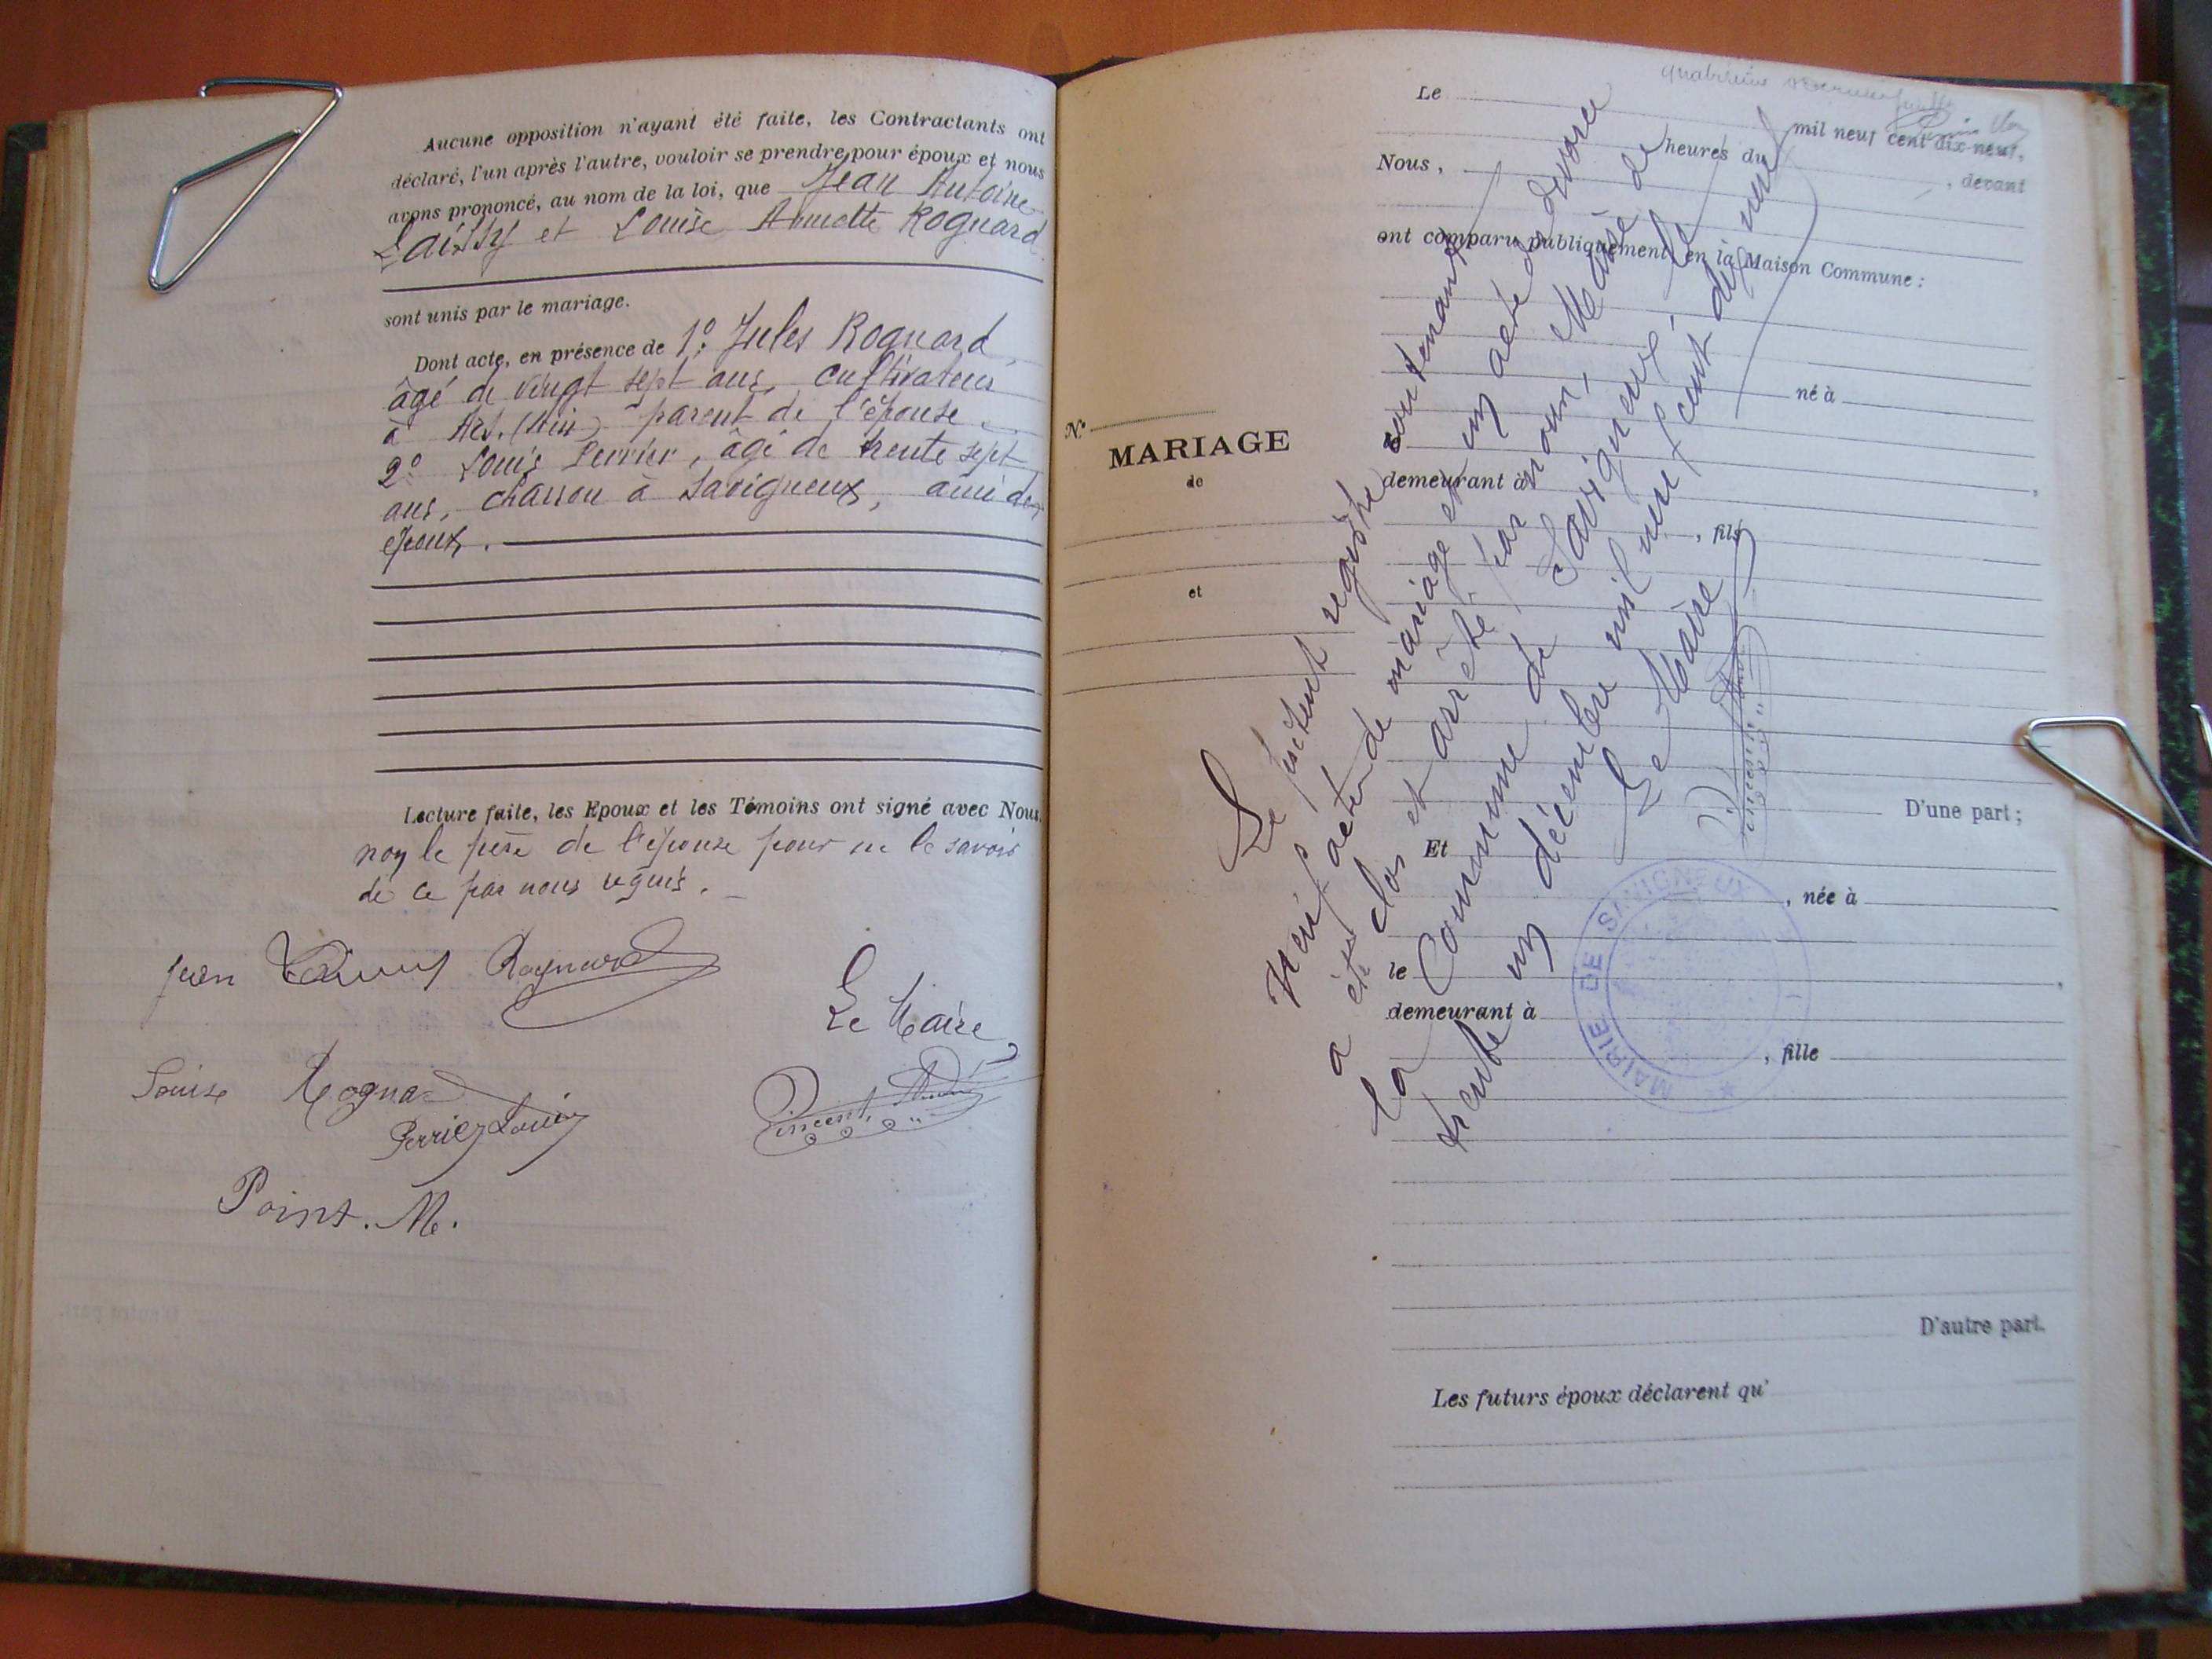 Aucune opposition n'ayant été faite, les Contractants ont
déclaré, l'un après l'autre, vouloir se prendre pour époux et nous
avons prononcé, au nom de la loi, que Jean Antoine
et Louise Annette Rognard
sont unis par le mariage.
Dont acte, en présence de 1º. Jules Rognard,
âgé de vingt sept ans, cultivateur
à Ars. (Ain) parent de l'épouse.
2º Louis Perrier, âgé de trente sept
ans, charron à Savigneux, ami des
époux.
Lecture faite, les Epoux et les Témoins ont signé avec Nous,
non le père de l'épouse pour ne le savoir
de ce par nous requis.
Jean Rognard
Le Maire
Louise Rognard
Perrier Louis
Vincent
Point. M.
Le
mil neuf cent dix-neuf,
heures du
, devant
Nous,
ont comparu publiquement en la Maison Commune :
né à
Nº
MARIAGE
de
demeurant à
, fils
et
D'une part ;
Et
, née à
le
demeurant à
, fille
D'autre part.
Les futurs époux déclarent qu'
Le présent registre contenant
neuf actes de mariage et un acte de divorce
a été clos et arrêté par nous, Maire de
la Commune de Savigneux, le
trente un décembre mil neuf cent dix neuf
Le Maire
Vincent
MAIRIE DE SAVIGNEUX